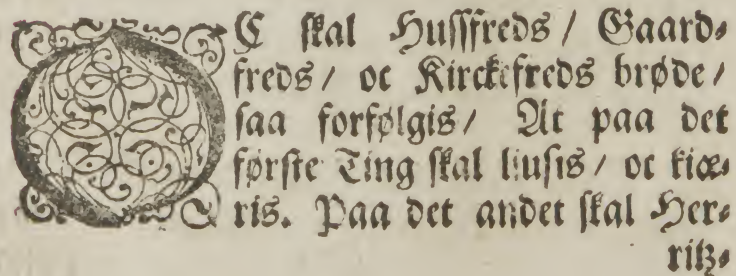 OC skal Hussfreds / Gaard-
freds / oc Kirckefreds brøde /
saa forfølgis / At paa det
første Ting skal liusis / oc kiæ-
ris. Paa det andet skal Her-
ritz-